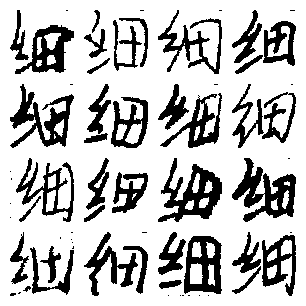 细细细细
细细细细
细细细细
细细细细